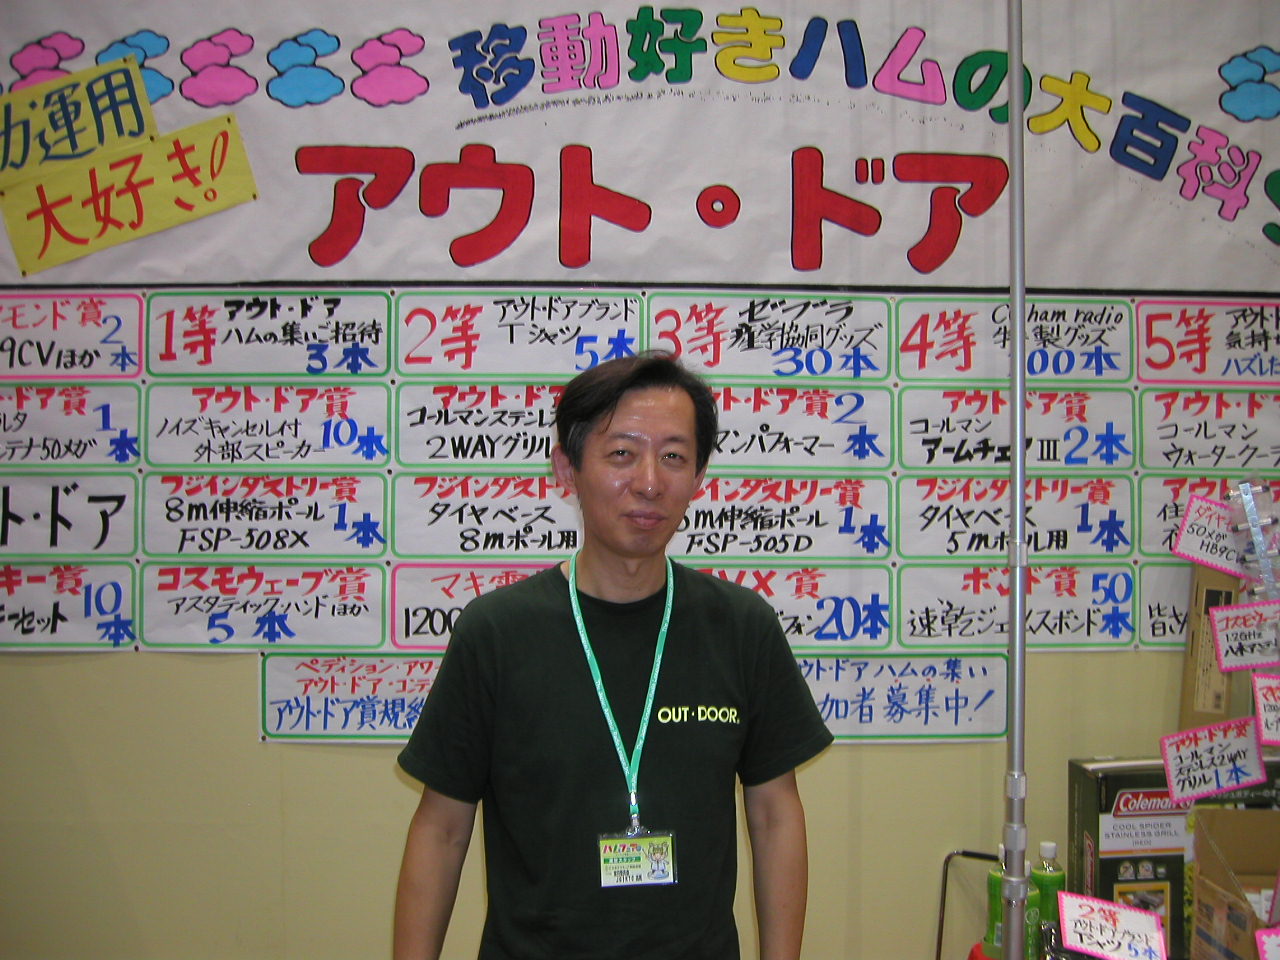 移動好きハムの大百科
運用
大好き!
アウト・ドア
モンド賞 2本
9CVほか
1等 アウト・ドア
ハムの集いご招待
3本
2等 アウト・ドアブランド
Tシャツ 5本
3等 ゼブラ
産学協同グッズ
30本
4等 ham radio
グッズ
00本
5等 アウト・ド
気持ち
ハズした
ドア賞 1本
ンテナ50メガ
アウト・ドア賞
ノイズキャンセル付
外部スピーカー 10本
アウト・ドア
コールマンステンレス
2WAYグリル
ト・ドア賞 2本
マンパフォーマー
アウトドア賞
コールマン
アームチェアIII 2本
アウト・ド
コールマン
ウォータークーラ
ト・ドア
フジインダストリー賞
8m伸縮ポール
FSP-508X
1本
フジインダストリ
タイヤベース
8mポール用
インダストリー賞
5m伸縮ポール
FSP-505D
1本
フジインダストリー賞
タイヤベース
5mポール用
1本
アウト
キー賞 10本
ーセット
コスモウェーブ賞
アスタティック・ハンドほか
5本
マキ電
1200
VX賞
フォン 20本
ボンド賞 50本
速乾ジェムスボンド
皆さ
ペディション・アワ
アウト・ドア・コンテ
アウト・ドア賞規約
ウト・ドアハムの集い
加者募集中!
OUT・DOOR
ハムフェア
ダイヤ
50メガ
HB9C
コスモウェ
1.2GHz
アウト・ドア賞
コールマン
ステンレス2WAY
グリル 1本
Coleman
COOL SPIDER
STAINLESS GRILL
(RED)
2等
アウト・ドアブランド
Tシャツ 5本